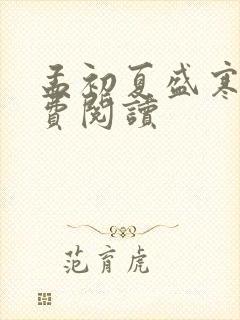 孟初夏盛寒
費閱讀
范育虎